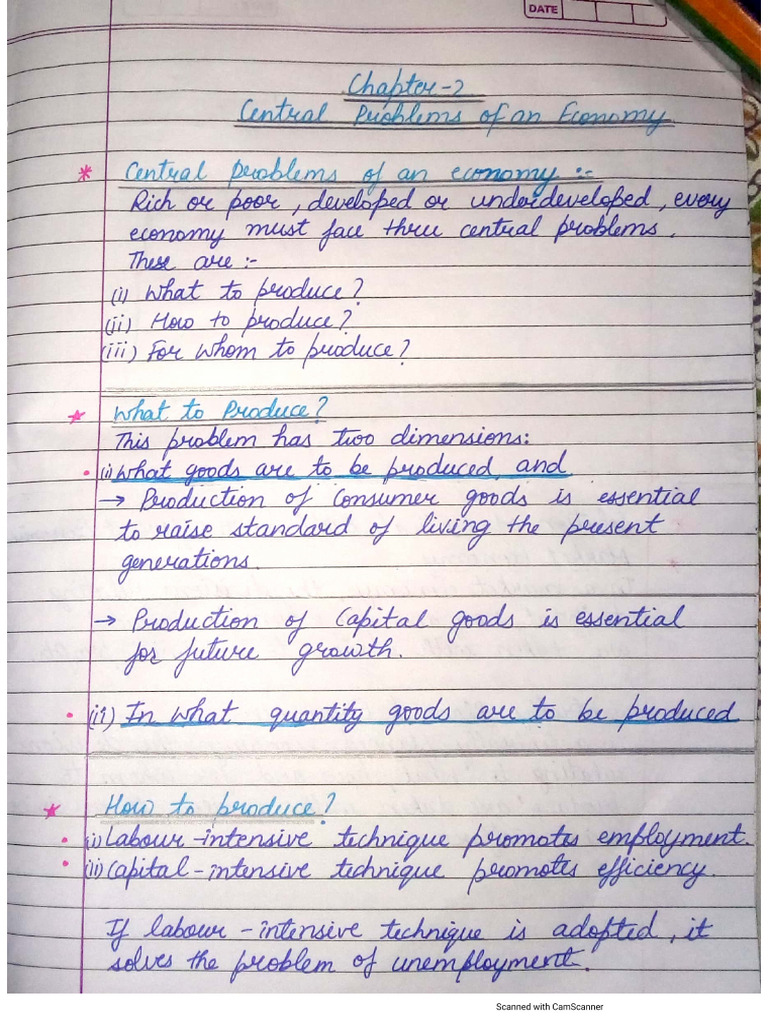 DATE
Chapter-2
Central Problems of an Economy
* Central problems of an economy :-
Rich or poor, developed or underdeveloped, every
economy must face three central problems.
These are :-
(i) What to produce?
(ii) How to produce?
(iii) For whom to produce?
* What to Produce?
This problem has two dimensions:
• (i) What goods are to be produced, and
→ Production of Consumer goods is essential
to raise standard of living the present
generations.
→ Production of Capital goods is essential
for future growth.
• (ii) In what quantity goods are to be produced
* How to produce?
• (i) Labour-intensive technique promotes employment.
• (ii) Capital-intensive technique promotes efficiency.
If labour-intensive technique is adopted, it
solves the problem of unemployment.
Scanned with CamScanner